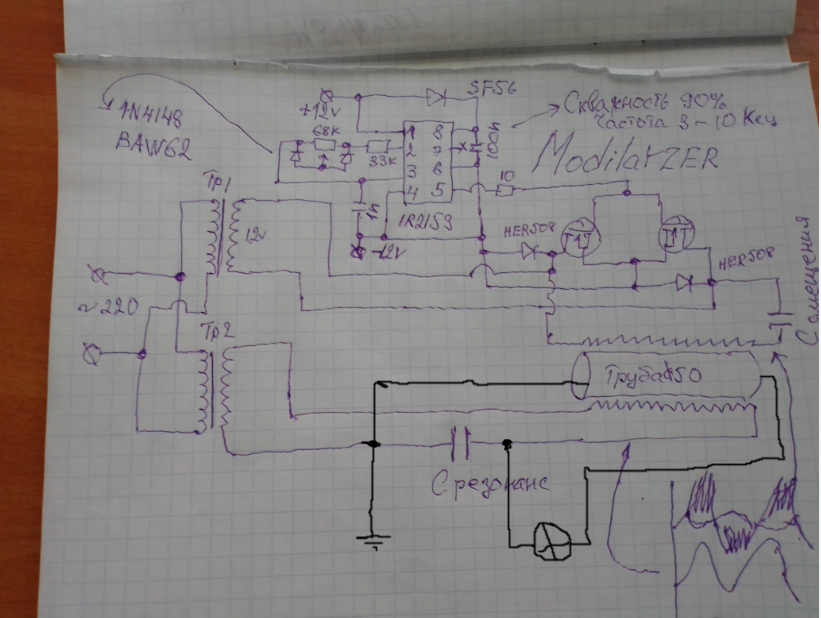 SF56
+12v
Скважность 90%
Частота 3-10 Кгц
1N4148
BAW62
68K
33K
1 8
2 7
3 6
4 5
100n
Modilatzer
10
IR2153
1n
-12v
Тр1
12v
HER508
HER508
~220
Тр2
С смещения
Труба ф50
С резонанс